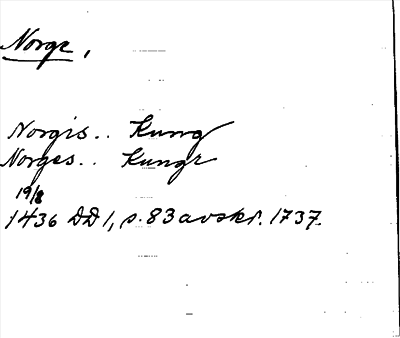 Norge,
Norgis.. Kung
Norges.. Kunge
19/8
1436 DD 1, s. 83 avskr. 1737.